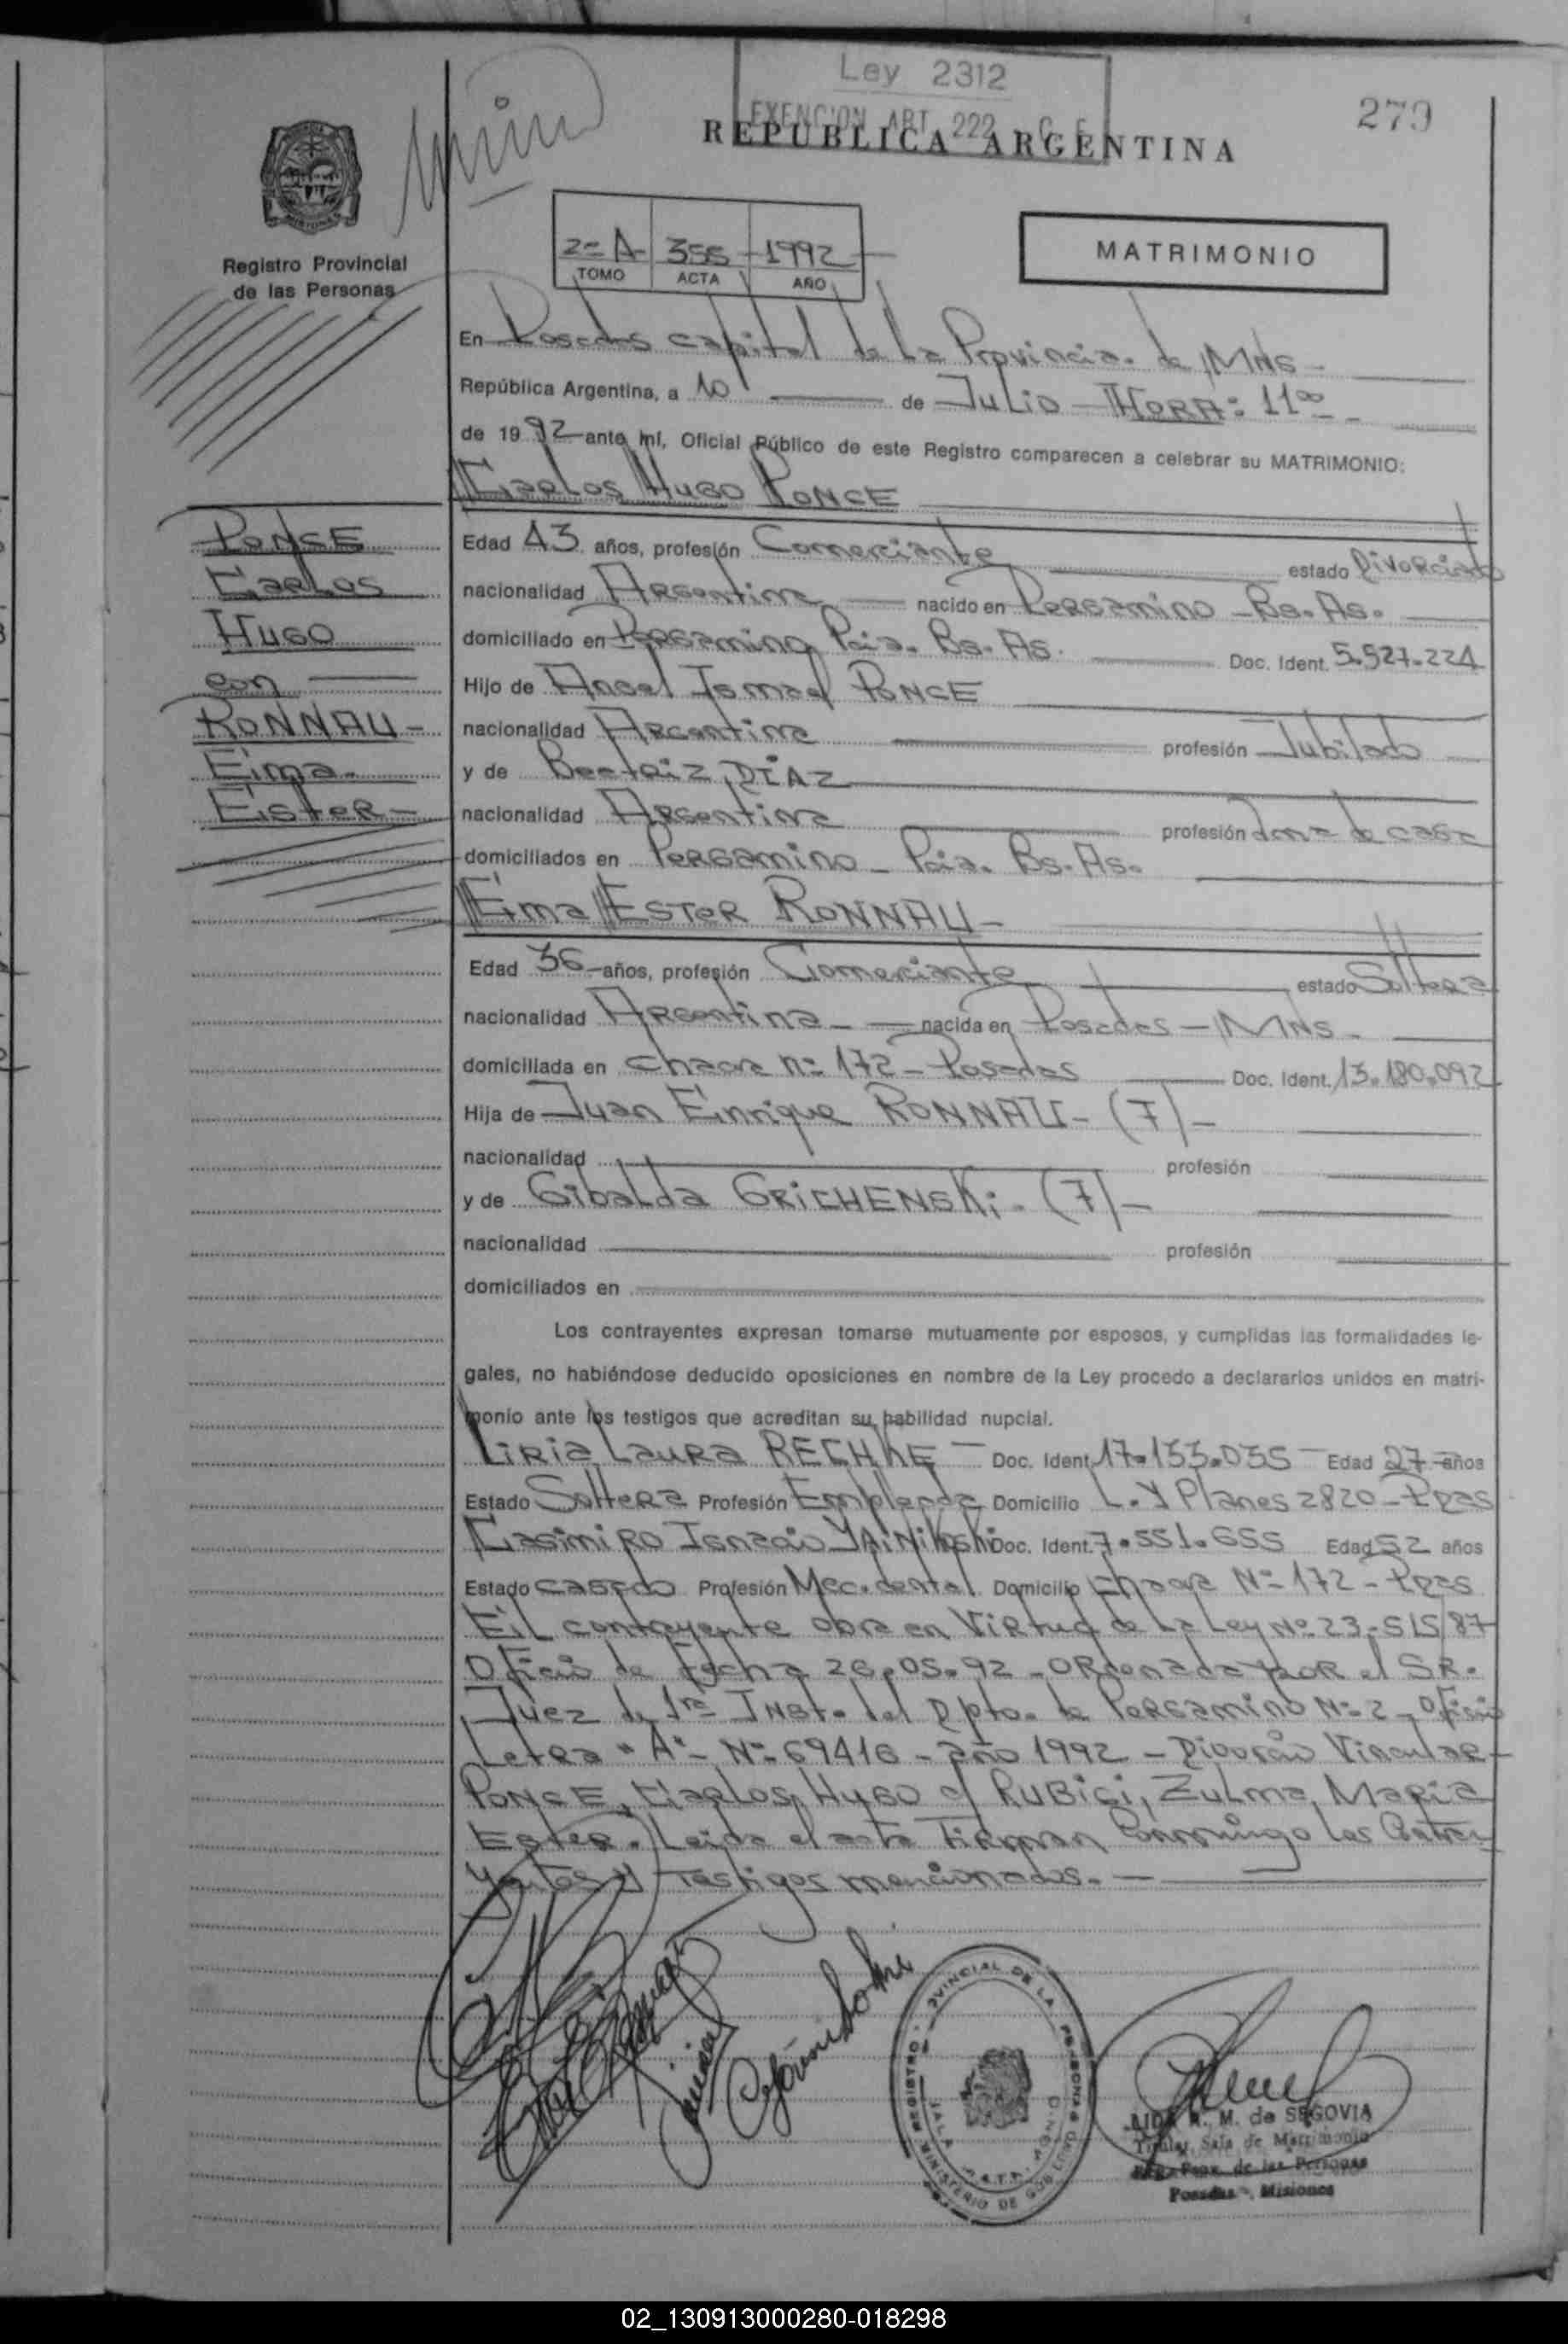 Ley 2312
EXENCION ART. 222 - C. F.
279
REPUBLICA ARGENTINA
Registro Provincial
de las Personas
2º A 355 1992
TOMO ACTA AÑO
MATRIMONIO
En Posadas capital de la Provincia de MNS -
República Argentina, a 10 de Julio - HORA: 1100 -
de 1992 ante mí, Oficial Público de este Registro comparecen a celebrar su MATRIMONIO:
Carlos Hugo PONCE
PONCE
Carlos
Hugo
con
RONNAU -
Elma
Ester -
Edad 43 años, profesión Comerciante estado Divorciado
nacionalidad Argentina nacido en Pergamino - Bs. As.
domiciliado en Pergamino Pcia. Bs. As. Doc. Ident. 5.527.224
Hijo de Angel Ismael PONCE
nacionalidad Argentina profesión Jubilado
y de Beatriz DIAZ
nacionalidad Argentina profesión Ama de casa
domiciliados en Pergamino - Pcia. Bs. As.
Elma Ester RONNAU -
Edad 36 años, profesión Comerciante estado Soltera
nacionalidad Argentina - nacida en Posadas - MNS -
domiciliada en Chacra Nº 172 - Posadas Doc. Ident. 13.180.092
Hija de Juan Enrique RONNAU - (F) -
nacionalidad profesión
y de Gibalda GRICHENSKi - (F) -
nacionalidad profesión
domiciliados en
Los contrayentes expresan tomarse mutuamente por esposos, y cumplidas las formalidades le-
gales, no habiéndose deducido oposiciones en nombre de la Ley procedo a declararlos unidos en matri-
monio ante los testigos que acreditan su habilidad nupcial.
Liria Laura - Doc. Ident. 17.133.035 - Edad 27 años
Estado Soltera Profesión Empleada Domicilio L. y Planes 2820 - Pdas
Casimiro Ignacio Doc. Ident. 7.551.655 Edad 52 años
Estado casado Profesión Mec. dental Domicilio Chacra Nº 172 - Pdas
El contrayente obra en Virtud de la Ley Nº 23.515/87
Oficio de fecha 26.05.92 - Ordenada por el SR.
Juez de 1ra Inst. del Dpto. de Pergamino Nº 2 - Oficio
Letra "A" - Nº 69416 - año 1992 - Divorcio Vincular -
PONCE, Carlos Hugo c/ RUBiCi, Zulma Maria
Ester. Leida el acta Firman Conmigo los Contra-
yentes y testigos mencionados. -
REGISTRO PROVINCIAL DE LA PERSONAS
MINISTERIO DE GOBIERNO
LIDA R. M. de SEGOVIA
Titular Sala de Matrimonio
Reg. Prov. de las Personas
Posadas - Misiones
02_130913000280-018298